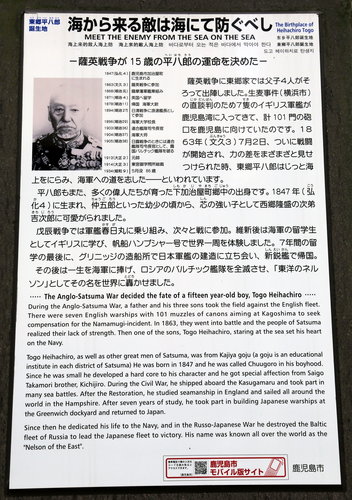 東郷平八郎
誕生地
海から来る敵は海にて防ぐべし
MEET THE ENEMY FROM THE SEA ON THE SEA
The Birthplace of
Heihachiro Togo
海上来的敌人海上防
海上來的敵人海上防
바다로부터 오는 적은 바다에서 막아야 한다
도고 헤이하치로 탄생지
―薩英戦争が15歳の平八郎の運命を決めた―
薩英戦争に東郷家では父子4人がそ
ろって出陣しました。生麦事件(横浜市)
の直談判のため7隻のイギリス軍艦が
鹿児島湾に入ってきて、計101門の砲
口を鹿児島に向けていたのです。18
63年(文久3)7月2日、ついに戦闘
が開始され、力の差をまざまざと見せ
つけられた時、東郷平八郎はじっと海
上をにらみ、海軍への道を志した――といわれています。
平八郎もまた、多くの偉人たちが育った下加治屋町郷中の出身です。1847年(弘
化4)に生まれ、仲五郎といった幼少の頃から、芯の強い子として西郷隆盛の次弟
吉次郎に可愛がられました。
戊辰戦争では軍艦春日丸に乗り組み、次々と戦に参加。維新後は海軍の留学生
としてイギリスに学び、帆船ハンプシャー号で世界一周を体験しました。7年間の留
学の最後に、グリニッジの造船所で日本軍艦の建造に立ち会い、新鋭艦で帰国。
その後は一生を海軍に捧げ、ロシアのバルチック艦隊を全滅させ、「東洋のネル
ソン」としてその名を世界に轟かせました。
The Anglo-Satsuma War decided the fate of a fifteen year-old boy, Togo Heihachiro
During the Anglo-Satsuma War, a father and his three sons took the field against the English fleet.
There were seven English warships with 101 muzzles of canons aiming at Kagoshima to seek
compensation for the Namamugi-incident. In 1863, they went into battle and the people of Satsuma
realized their lack of strength. Then one of the sons, Togo Heihachiro, staring at the sea set his heart
on the Navy.
Togo Heihachiro, as well as other great men of Satsuma, was from Kajiya goju (a goju is an educational
institute in each district of Satsuma) He was born in 1847 and he was called Chuugoro in his boyhood.
Since he was small he developed a hard core to his character and he got special affection from Saigo
Takamori brother, Kichijiro. During the Civil War, he shipped aboard the Kasugamaru and took part in
many sea battles. After the Restoration, he studied seamanship in England and sailed all around the
world in the Hampshire. After seven years of study, he took part in building Japanese warships at the
Greenwich dockyard and returned to Japan.
Since then he dedicated his life to the Navy, and in the Russo-Japanese War he destroyed the Baltic
fleet of Russia to lead the Japanese fleet to victory. His name was known all over the world as the
"Nelson of the East".
鹿児島市
モバイル版サイト
鹿児島市